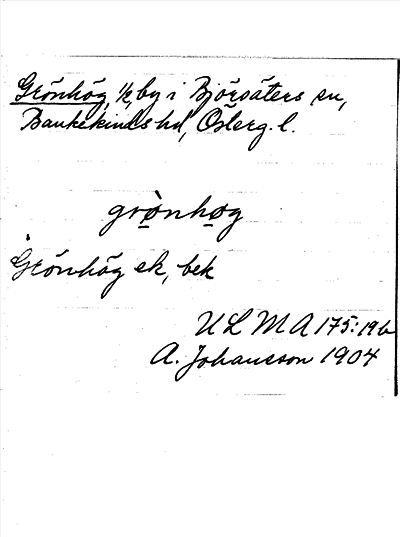 Grönhög, ½, by i Björsäters sn,
Bankekinds hd, Österg. l.
grò̱nho̱g
Grönhög ek, bek
ULMA 175:19b
A. Johansson 1904